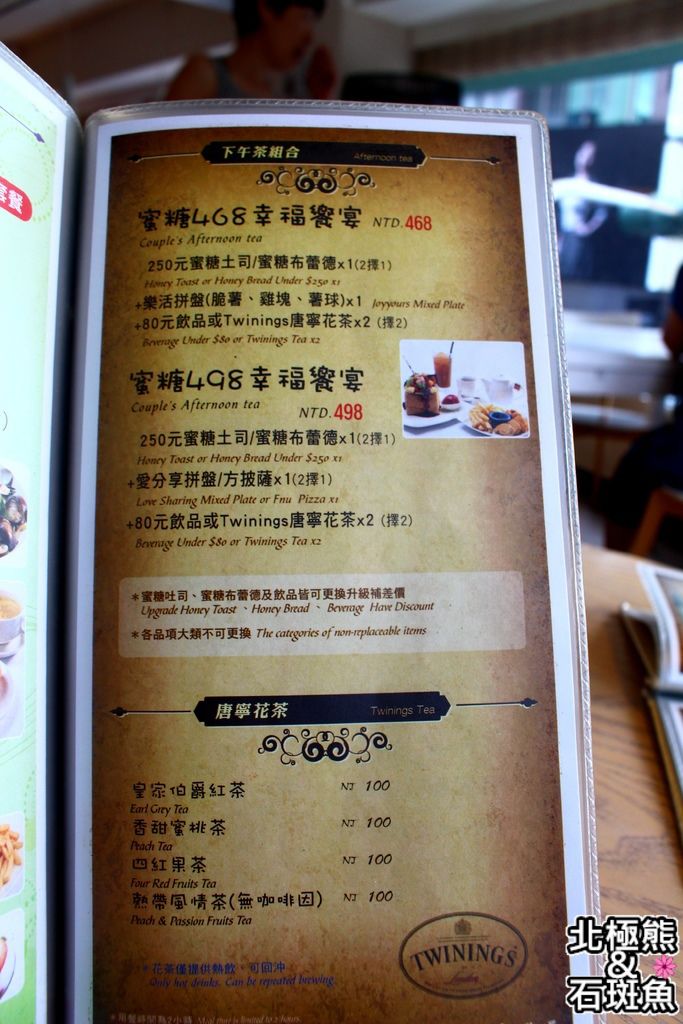 套餐
下午茶組合 Afternoon tea
蜜糖468幸福饗宴 NTD.468
Couple's Afternoon tea
250元蜜糖土司/蜜糖布蕾德x1(2擇1)
Honey Toast or Honey Bread Under $250 x1
+樂活拼盤(脆薯、雞塊、薯球)x1 Joyyours Mixed Plate
+80元飲品或Twinings唐寧花茶x2 (擇2)
Beverage Under $80 or Twinings Tea x2
蜜糖498幸福饗宴
Couple's Afternoon tea NTD.498
250元蜜糖土司/蜜糖布蕾德x1(2擇1)
Honey Toast or Honey Bread Under $250 x1
+愛分享拼盤/方披薩x1(2擇1)
Love Sharing Mixed Plate or Fnu Pizza x1
+80元飲品或Twinings唐寧花茶x2 (擇2)
Beverage Under $80 or Twinings Tea x2
*蜜糖吐司、蜜糖布蕾德及飲品皆可更換升級補差價
Upgrade Honey Toast、Honey Bread、Beverage Have Discount
*各品項大類不可更換 The categories of non-replaceable items
唐寧花茶 Twinings Tea
皇家伯爵紅茶 NT 100
Earl Grey Tea
香甜蜜桃茶 NT 100
Peach Tea
四紅果茶 NT 100
Four Red Fruits Tea
熱帶風情茶(無咖啡因) NT 100
Peach & Passion Fruits Tea
*花茶僅提供熱飲，可回沖
Only hot drinks. Can be repeated brewing
TWININGS
London
*用餐時間為2小時 Meal that is limited to 2 hours.
北極熊
&
石斑魚